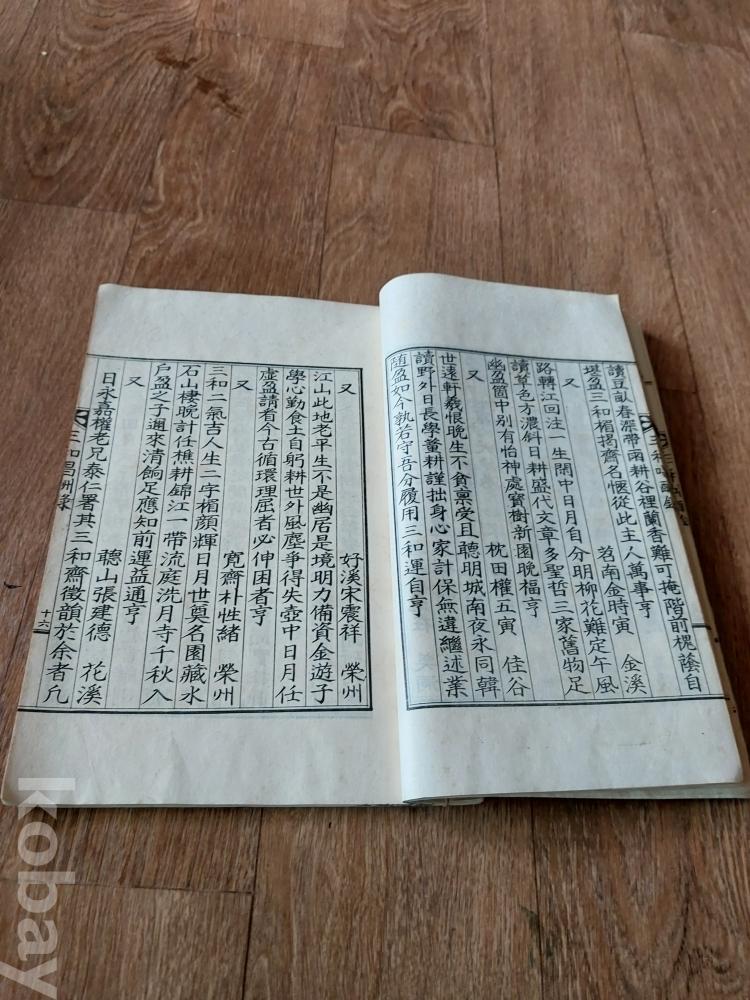 讀豆畝春深帶雨耕谷裡蘭香難可掩階前槐蔭自
堪盈三和楣揭齋名愜從此主人萬事亨
又 苕南金時寅 金溪
路轉江回注一生閒中日月自分明柳花難定午風
讀草色方濃斜日耕盛代文章多聖哲三家舊物足
幽盈箇中別有怡神處寶樹新園晚福亨
又 枕田權五寅 佳谷
世遠軒羲恨晚生不貪禀受且聰明城南夜永同韓
讀野外日長學蕢耕謹拙身心家計保無違繼述業
随盈如今孰若守吾分履用三和運自亨
又 好溪宋震祥 榮州
江山此地老平生不是幽居是境明力備資金遊子
學心勤食土自躬耕世外風塵爭得失壺中日月任
虛盈請看今古循環理屈者必伸困者亨
又 寬齋朴性緒 榮州
三和二氣吉人生二字楣顔輝日月世奠名園藏水
石山棲晚計任樵耕錦江一帶流庭洗月寺千秋入
户盈之子週來清餉足應知前運益通亨
又 聽山張建德 花溪
日永嘉權老兄泰仁署其三和齋徵韻於余者凡
十六
kobay